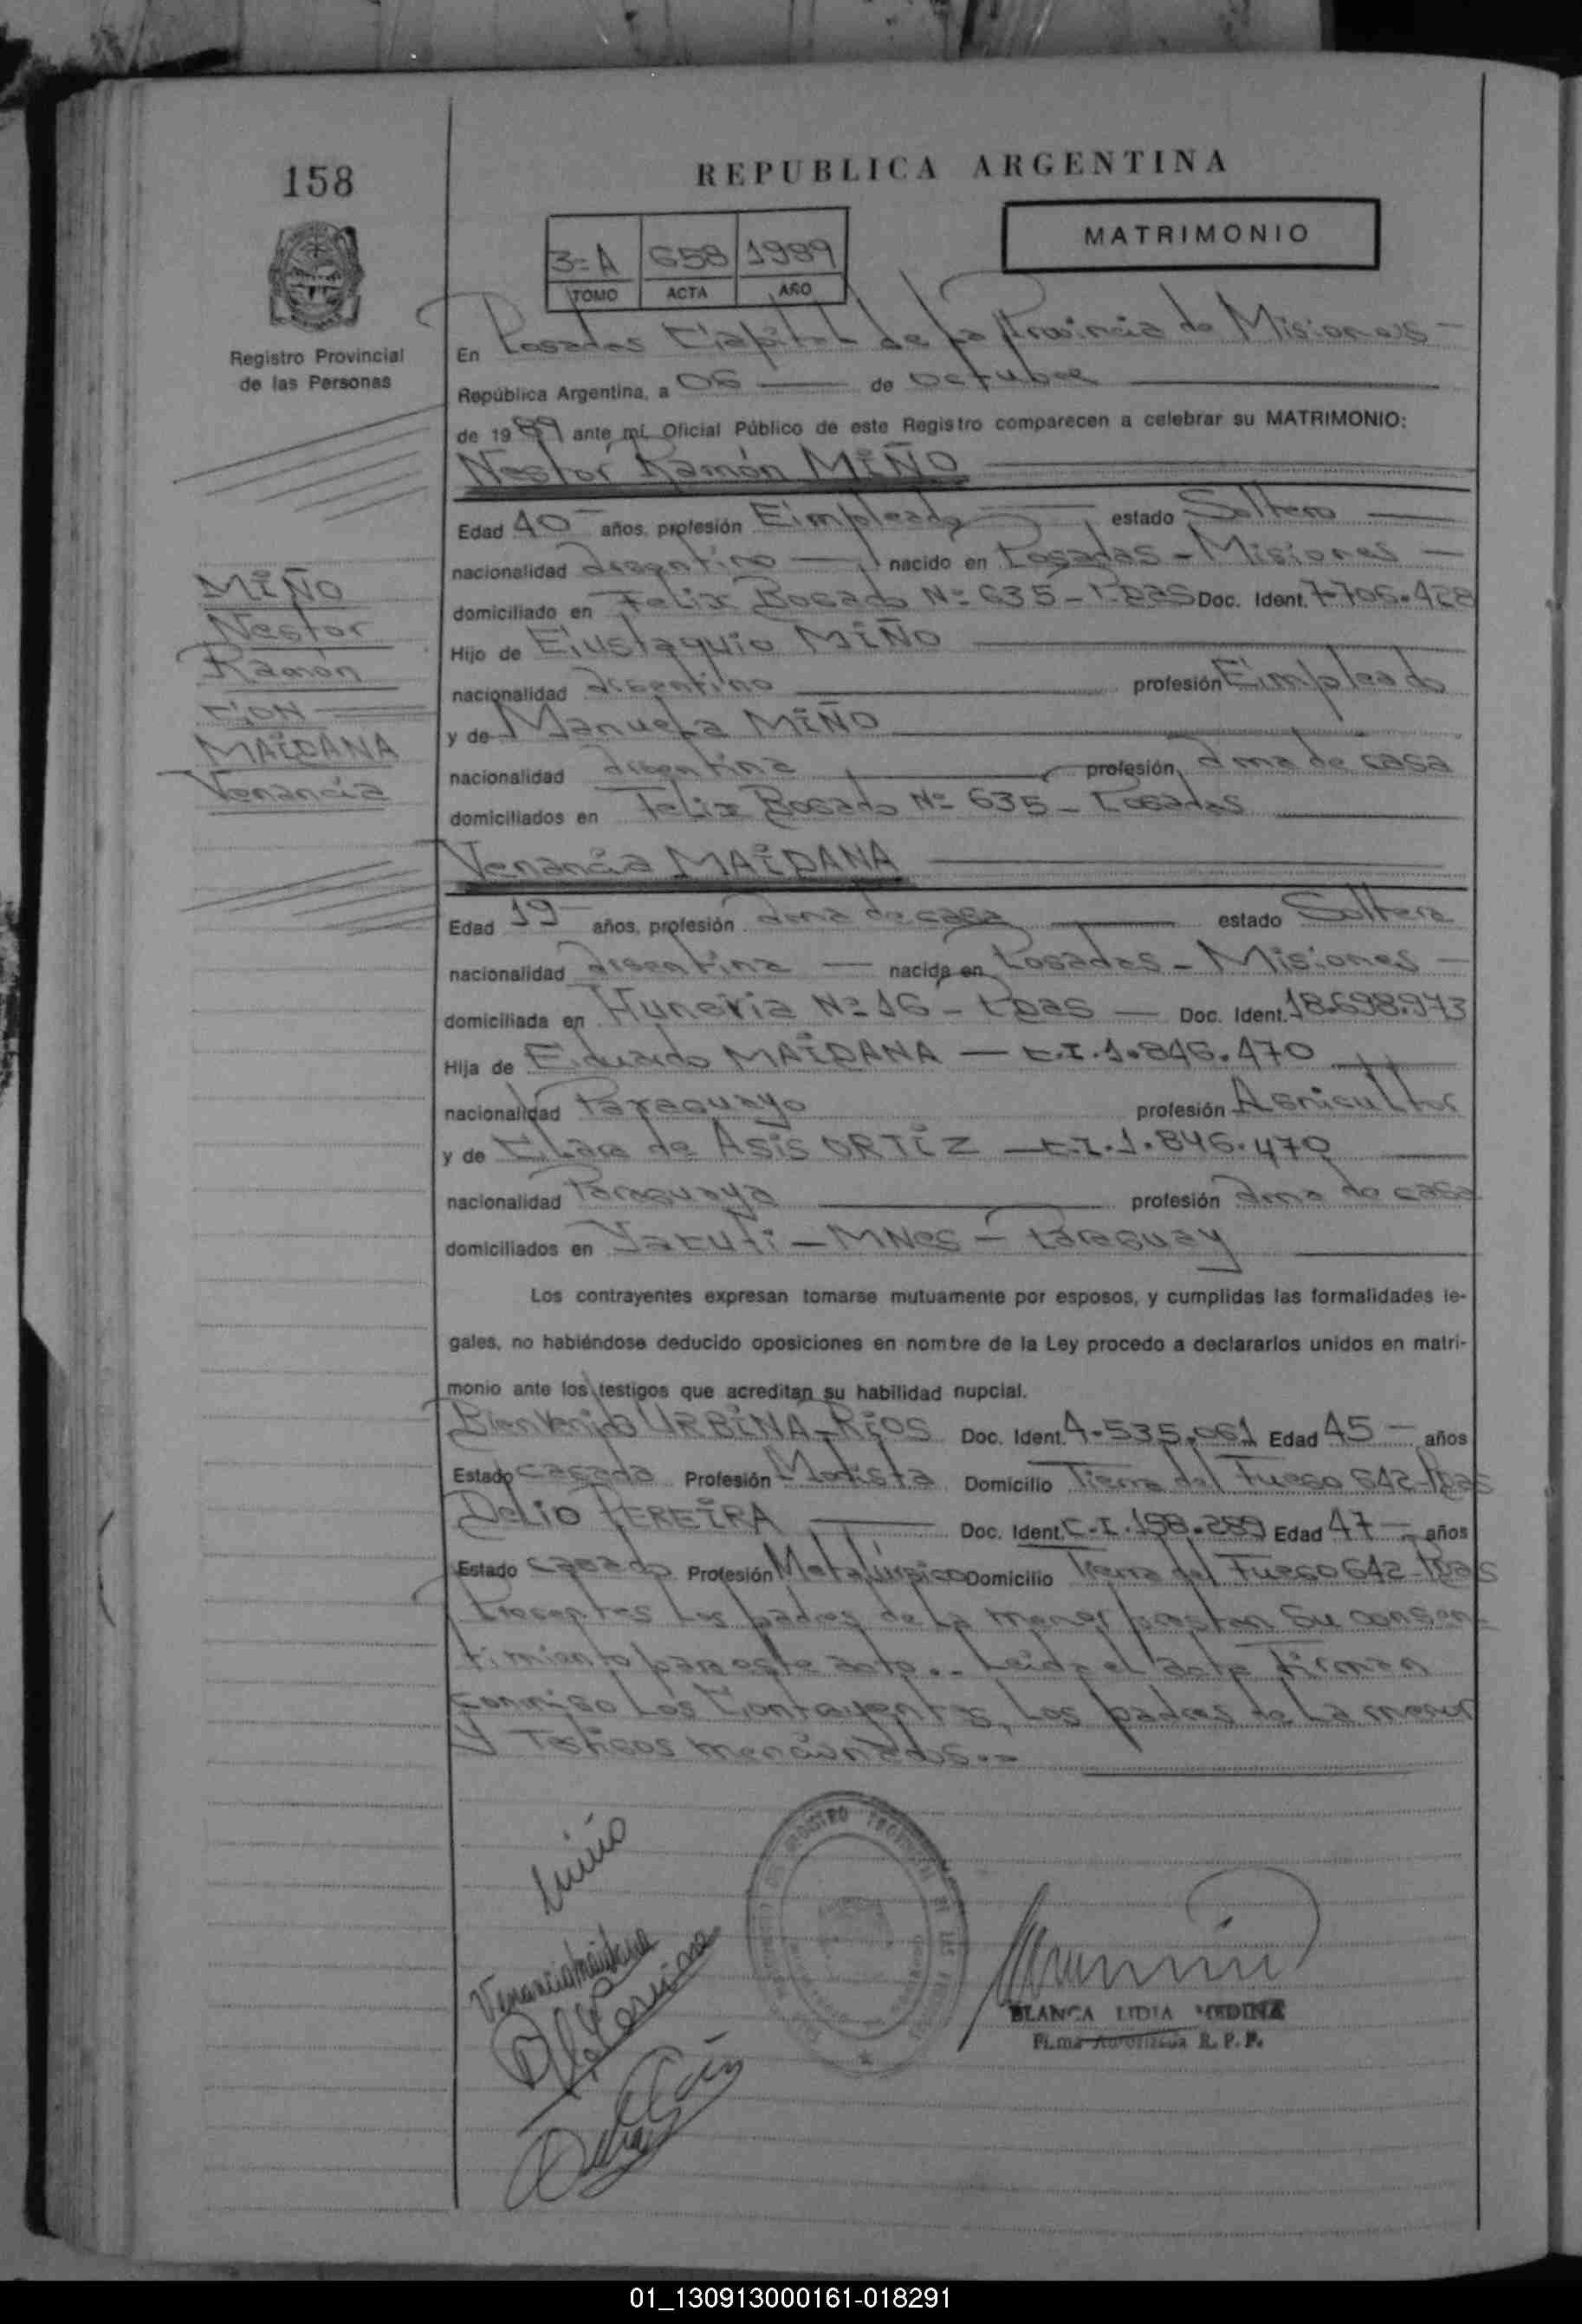 158
REPUBLICA ARGENTINA
MATRIMONIO
3=A 658 1989
TOMO ACTA AÑO
Registro Provincial
de las Personas
En Posadas Capital de la Provincia de Misiones -
República Argentina, a 06 de octubre
de 1989 ante mí, Oficial Público de este Registro comparecen a celebrar su MATRIMONIO:
Nestor Ramón MIÑO
Edad 40 años, profesión Empleado estado Soltero
nacionalidad argentino nacido en Posadas - Misiones
domiciliado en Felix Bogado Nº 635 - Pdas Doc. Ident. 7.706.428
Hijo de Eustaquio MIÑO
nacionalidad argentino profesión Empleado
y de Manuela MIÑO
nacionalidad argentina profesión ama de casa
domiciliados en Felix Bogado Nº 635 - Posadas
MIÑO
Nestor
Ramón
CON
MAIDANA
Venancia
Venancia MAIDANA
Edad 19 años, profesión ama de casa estado Soltera
nacionalidad argentina nacida en Posadas - Misiones
domiciliada en Hungria Nº 16 - Pdas Doc. Ident. 18.698.973
Hija de Eduardo MAIDANA - C.I. 1.846.470
nacionalidad Paraguayo profesión Agricultor
y de Clara de Asis ORTIZ - C.I. 1.846.470
nacionalidad Paraguaya profesión ama de casa
domiciliados en - MNes - Paraguay
Los contrayentes expresan tomarse mutuamente por esposos, y cumplidas las formalidades le-
gales, no habiéndose deducido oposiciones en nombre de la Ley procedo a declararlos unidos en matri-
monio ante los testigos que acreditan su habilidad nupcial.
URBINA RIOS Doc. Ident. 4.535.061 Edad 45 años
Estado casada Profesión Modista Domicilio Tierra del Fuego 642 - Pdas
Delio PEREIRA Doc. Ident. C.I. 158.289 Edad 47 años
Estado casado Profesión Metalúrgico Domicilio Tierra del Fuego 642 - Pdas
Presentes los padres de la menor prestan su consen-
timiento para este acto.- Leida el acta Firman
conmigo Los Contrayentes, Los padres de la menor
y Testigos mencionados.-
Miño
Venancia Maidana
BLANCA LIDIA MEDINA
Firma Autorizada R. P. P.
01_130913000161-018291